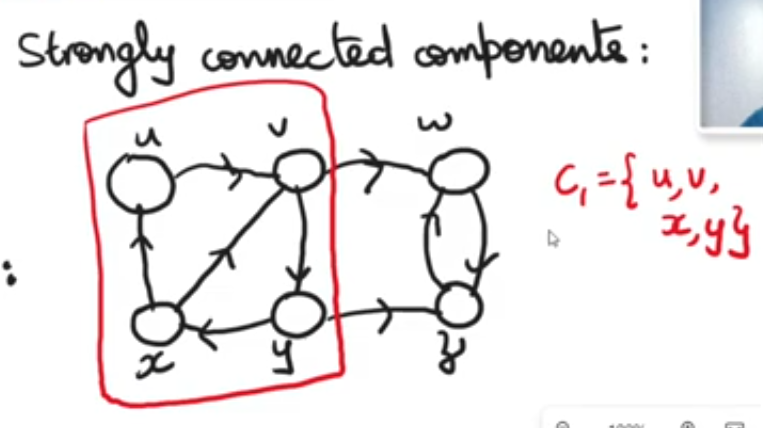 Strongly connected components:
u v w
C₁ = { u, v,
x, y }
:
x y z